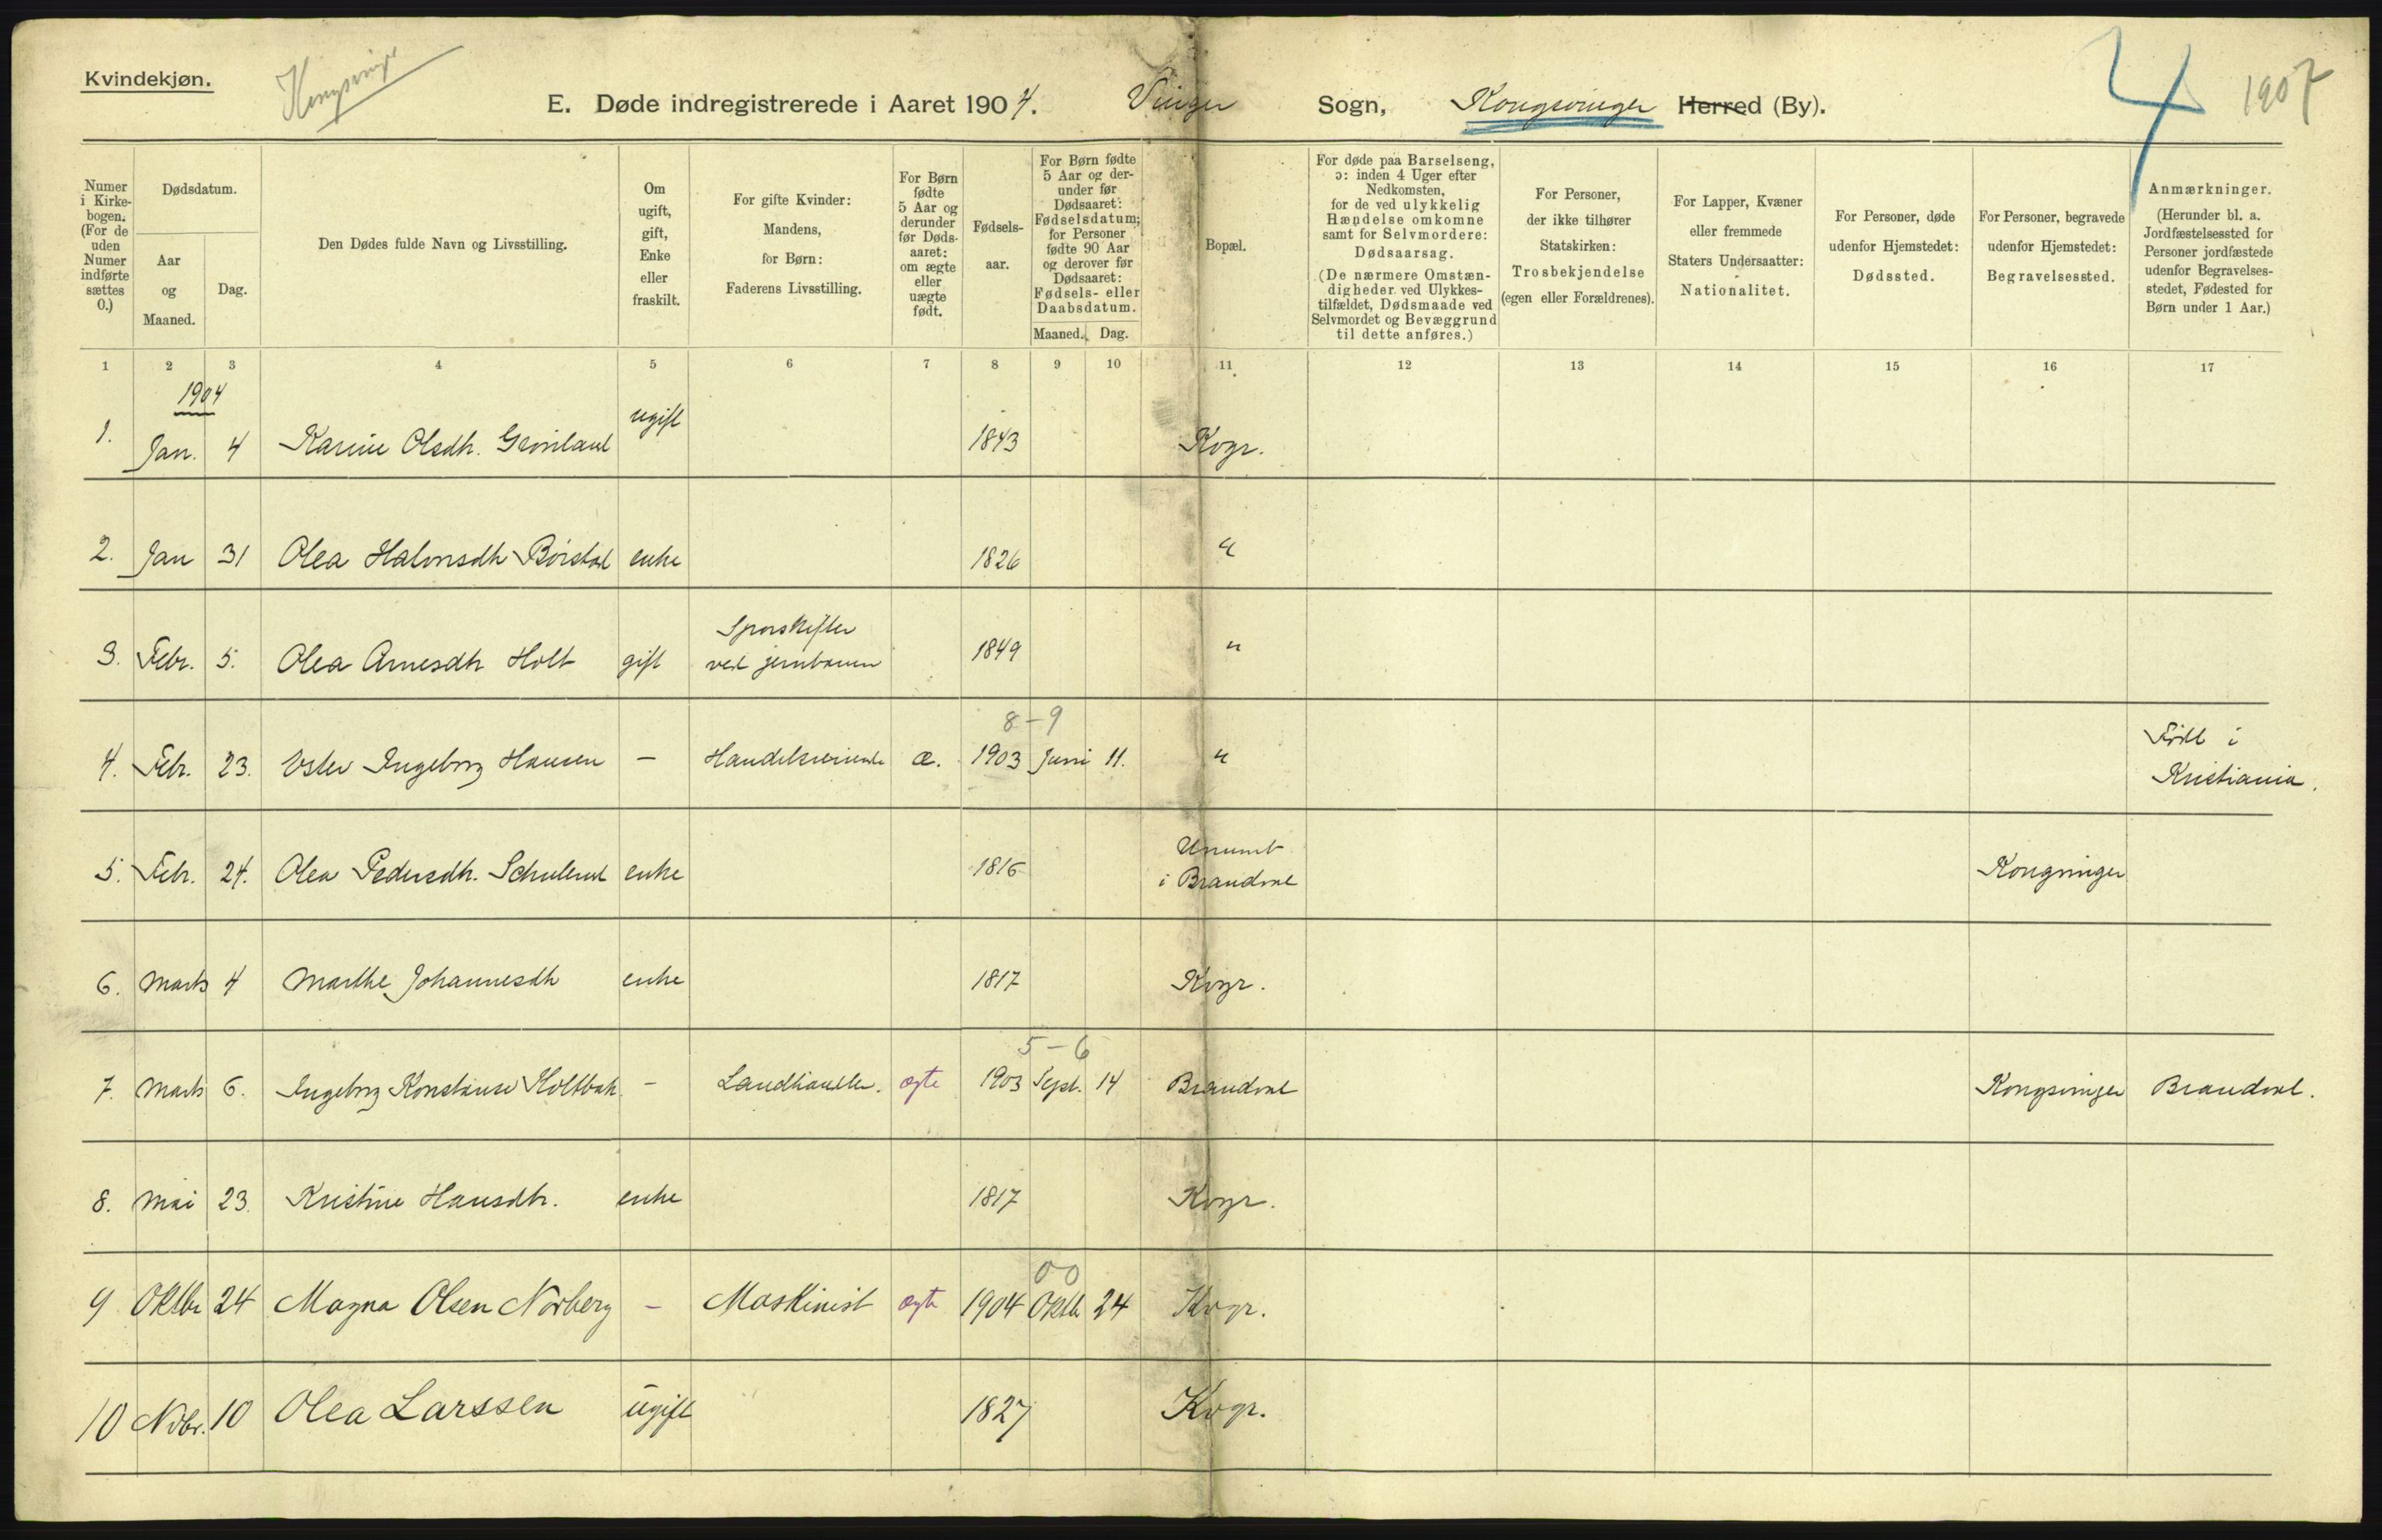 Kvindekjøn.
Kongsvinger
E. Døde indregistrerede i Aaret 1904. Vinger Sogn, Kongsvinger Herred (By).
4
1907
Numer i Kirkebogen. (For de uden Numer indførte sættes 0.)
Dødsdatum.
Aar og Maaned.
Dag.
Den Dødes fulde Navn og Livsstilling.
Om ugift, gift, Enke eller fraskilt.
For gifte Kvinder: Mandens, for Børn: Faderens Livsstilling.
For Børn fødte 5 Aar og derunder før Dødsaaret: om ægte eller uægte født.
Fødselsaar.
For Børn fødte 5 Aar og derunder før Dødsaaret: Fødselsdatum; for Personer fødte 90 Aar og derover før Dødsaaret: Fødsels- eller Daabsdatum.
Maaned. Dag.
Bopæl.
For døde paa Barselseng, ɔ: inden 4 Uger efter Nedkomsten, for de ved ulykkelig Hændelse omkomne samt for Selvmordere: Dødsaarsag. (De nærmere Omstændigheder ved Ulykkestilfældet, Dødsmaade ved Selvmordet og Bevæggrund til dette anføres.)
For Personer, der ikke tilhører Statskirken: Trosbekjendelse (egen eller Forældrenes).
For Lapper, Kvæner eller fremmede Staters Undersaatter: Nationalitet.
For Personer, døde udenfor Hjemstedet: Dødssted.
For Personer, begravede udenfor Hjemstedet: Begravelsessted.
Anmærkninger. (Herunder bl. a. Jordfæstelsessted for Personer jordfæstede udenfor Begravelsesstedet, Fødested for Børn under 1 Aar.)
1 2 3 4 5 6 7 8 9 10 11 12 13 14 15 16 17
1904
1. Jan. 4 Karine Olsdh. Grønland ugift 1843 Kvgr.
2. Jan 31 Olea Halvorsdh Børstad enke 1826 "
3. Febr. 5. Olea Arnesdh Holt gift Sporskifter ved jernbanen 1849 "
8-9
4. Febr. 23. Ingeborg Hansen - æ. 1903 Juni 11. " Født i Kristiania.
5. Febr. 24. Olea Pedersdh. enke 1816 i Brandval Kongsvinger
6. Marts 4 Marthe Johannesdh enke 1817 Kvgr.
5-6
7. Marts 6. Ingeborg Konstanse Holtbak. - Landhandler. ægte 1903 Sept. 14 Brandval Kongsvinger Brandval.
8. Mai 23. Kristine Hansdh. enke 1817 Kvgr.
00
9 Oktbr 24 Magna Olsen Norberg - Maskinist ægte 1904 Oktb 24 Kvgr.
10 Nvbr. 10 Olea Larssen ugift 1827 Kvgr.